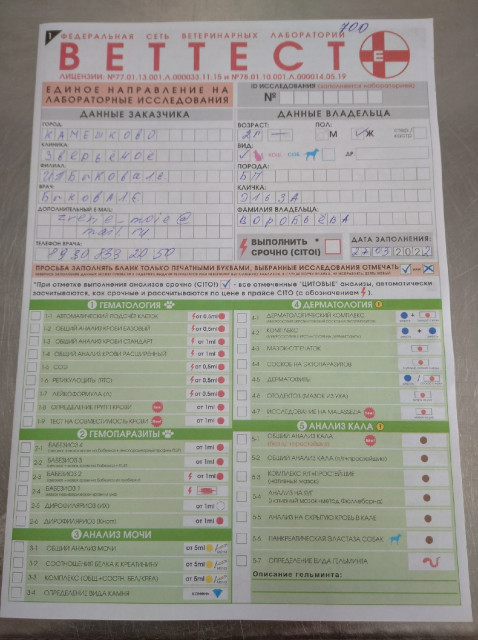 700
1 ФЕДЕРАЛЬНАЯ СЕТЬ ВЕТЕРИНАРНЫХ ЛАБОРАТОРИЙ
ВЕТТЕСТ
ЛИЦЕНЗИИ: №77.01.13.001.Л.000033.11.15 и №78.01.10.001.Л.000014.05.19
ЕДИНОЕ НАПРАВЛЕНИЕ НА
ЛАБОРАТОРНЫЕ ИССЛЕДОВАНИЯ
ID ИССЛЕДОВАНИЯ (заполняется лабораторией)
№
ДАННЫЕ ЗАКАЗЧИКА
ГОРОД:
КАМЕШКОВО
КЛИНИКА:
Зверьёное
ФИЛИАЛ:
ИП Биковале
ВРАЧ:
Биковале
ДОПОЛНИТЕЛЬНЫЙ E-MAIL:
mail.ru
ТЕЛЕФОН ВРАЧА:
8930 833 20 50
ДАННЫЕ ВЛАДЕЛЬЦА
ВОЗРАСТ: ПОЛ:
2г М Ж
ВИД:
КОШ. СОБ. ДР.
ПОРОДА:
БП
КЛИЧКА:
ЭЛЬЗА
ФАМИЛИЯ ВЛАДЕЛЬЦА:
ВОРОБЬЕВА
ВЫПОЛНИТЬ *
СРОЧНО (CITO!)
ДАТА ЗАПОЛНЕНИЯ:
2022
ПРОСЬБА ЗАПОЛНЯТЬ БЛАНК ТОЛЬКО ПЕЧАТНЫМИ БУКВАМИ, ВЫБРАННЫЕ ИССЛЕДОВАНИЯ ОТМЕЧАТЬ ИЛИ
*При отметке выполнения анализов срочно (CITO!) - все отмеченные "ЦИТОВЫЕ" анализы, автоматически
засчитываются, как срочные и рассчитываются по цене в прайсе CITO (с обозначением ).
1 ГЕМАТОЛОГИЯ
1-1 АВТОМАТИЧЕСКИЙ ПОДСЧЁТ КЛЕТОК от 0,5ml
1-2 ОБЩИЙ АНАЛИЗ КРОВИ БАЗОВЫЙ от 0,5ml
1-3 ОБЩИЙ АНАЛИЗ КРОВИ СТАНДАРТ от 1ml
1-4 ОБЩИЙ АНАЛИЗ КРОВИ РАСШИРЕННЫЙ от 1ml
1-5 СОЭ от 0,5ml
1-6 РЕТИКУЛОЦИТЫ (RTC) от 0,5ml
1-7 ЛЕЙКОФОРМУЛА от 0,5ml
1-8 ОПРЕДЕЛЕНИЕ ГРУПП КРОВИ от 1ml
1-9 ТЕСТ НА СОВМЕСТИМОСТЬ КРОВИ от 1ml
2 ГЕМОПАРАЗИТЫ
2-1 БАБЕЗИОЗ 4 от 1ml
2-2 БАБЕЗИОЗ 3 от 1ml
2-3 БАБЕЗИОЗ 2 от 1ml
2-4 БАБЕЗИОЗ 1
2-5 ДИРОФИЛЯРИОЗ от 1ml
2-6 ДИРОФИЛЯРИОЗ (Кнотт) от 1ml
3 АНАЛИЗ МОЧИ
3-1 ОБЩИЙ АНАЛИЗ МОЧИ от 5ml
3-2 СООТНОШЕНИЯ БЕЛКА К КРЕАТИНИНУ от 5ml
3-3 КОМПЛЕКС (ОБЩ.+СООТН. БЕЛ/КРЕА) от 5ml
3-4 ОПРЕДЕЛЕНИЕ ВИДА КАМНЯ камень
4 ДЕРМАТОЛОГИЯ
4-1 ДЕРМАТОЛОГИЧЕСКИЙ КОМПЛЕКС
4-2 КОМПЛЕКС
4-3 МАЗОК-ОТПЕЧАТОК
4-4 СОСКОБ НА ЭКТОПАРАЗИТОВ
4-5 ДЕРМАТОФИТЫ
4-6 ОТОДЕКТОЗ (МАЗОК ИЗ УХА)
4-7 ИССЛЕДОВАНИЕ НА МАЛАССЕЗИЯ
5 АНАЛИЗ КАЛА
5-1 ОБЩИЙ АНАЛИЗ КАЛА
5-2 ОБЩИЙ АНАЛИЗ КАЛА
5-3 КОМПЛЕКС ЯГ+ПРОСТЕЙШИЕ
5-4 АНАЛИЗ НА Я/Г
5-5 АНАЛИЗ НА СКРЫТУЮ КРОВЬ В КАЛЕ
5-6 ПАНКРЕАТИЧЕСКАЯ ЭЛАСТАЗА СОБАК
5-7 ОПРЕДЕЛЕНИЕ ВИДА ГЕЛЬМИНТА
Описание гельминта: